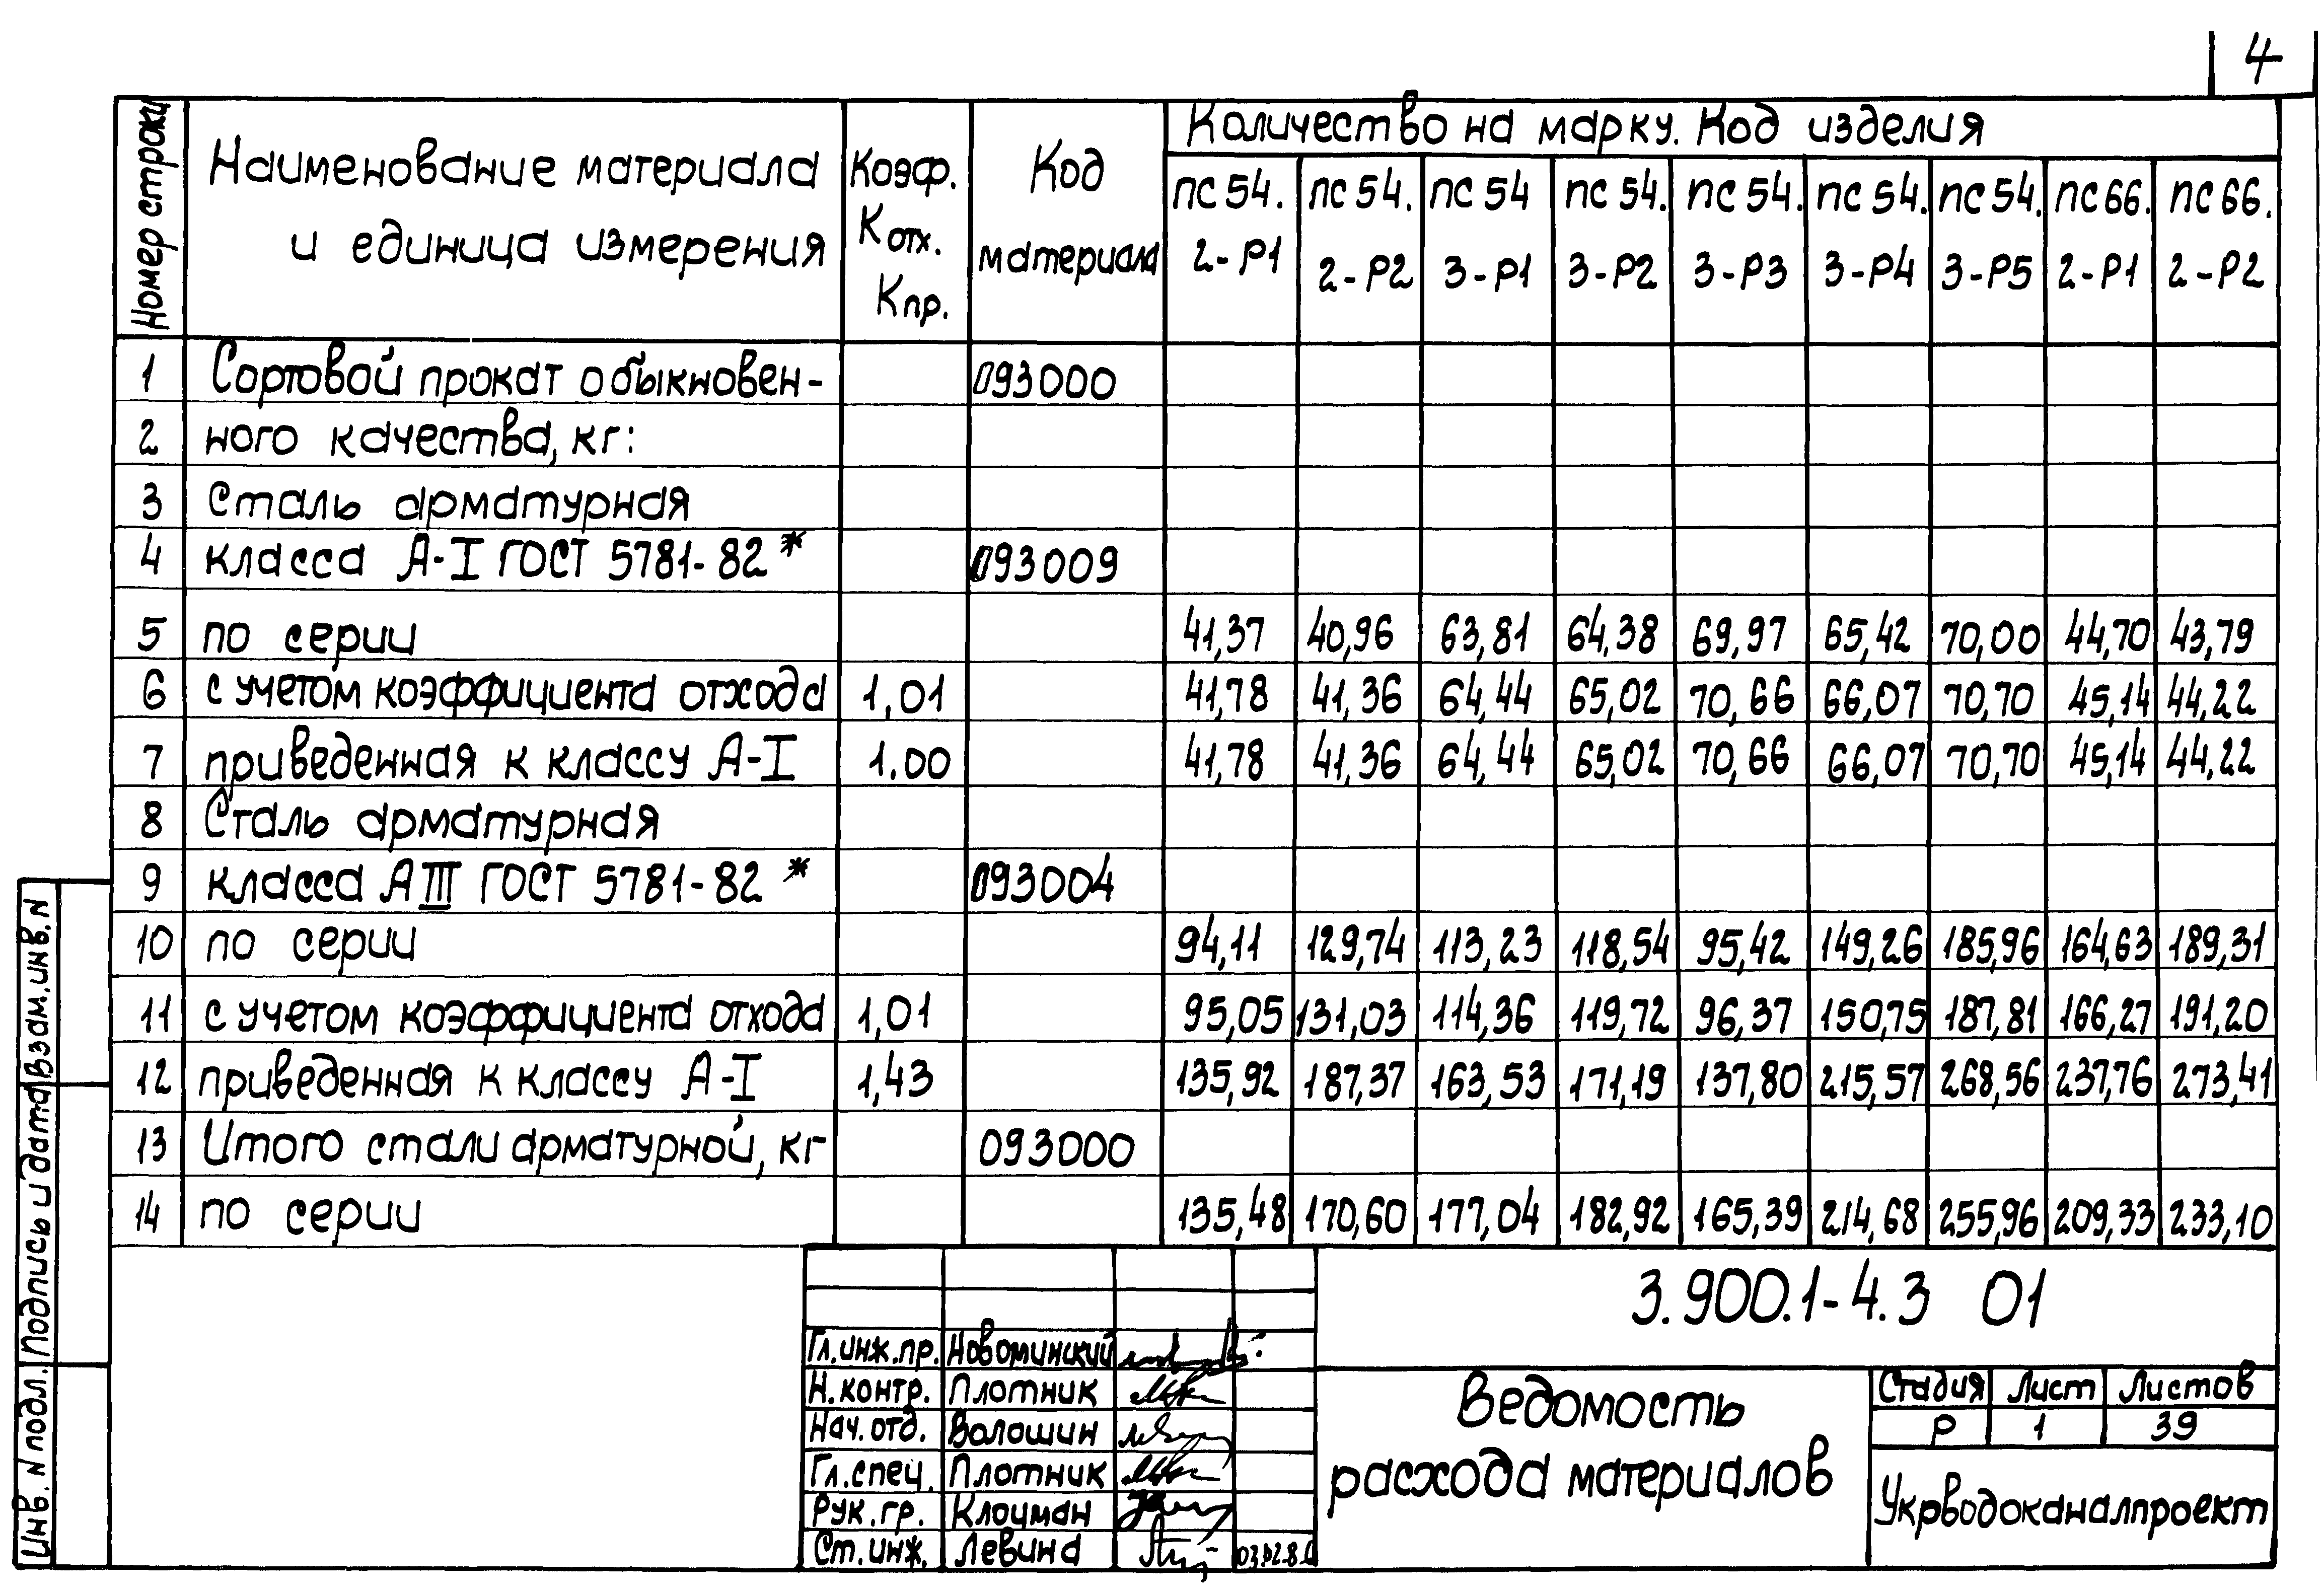 4
Номер строки | Наименование материала и единица измерения | Коэф. Котх. Кпр. | Код материала | Количество на марку. Код изделия
ПС 54. 2-Р1 | ПС 54. 2-Р2 | ПС 54 3-Р1 | ПС 54. 3-Р2 | ПС 54. 3-Р3 | ПС 54. 3-Р4 | ПС 54. 3-Р5 | ПС 66. 2-Р1 | ПС 66. 2-Р2
1 Сортовой прокат обыкновен- 093000
2 ного качества, кг:
3 Сталь арматурная
4 класса А-I ГОСТ 5781-82* 093009
5 по серии 41,37 40,96 63,81 64,38 69,97 65,42 70,00 44,70 43,79
6 с учетом коэффициента отхода 1,01 41,78 41,36 64,44 65,02 70,66 66,07 70,70 45,14 44,22
7 приведенная к классу А-I 1.00 41,78 41,36 64,44 65,02 70,66 66,07 70,70 45,14 44,22
8 Сталь арматурная
9 класса АIII ГОСТ 5781-82* 093004
10 по серии 94,11 129,74 113,23 118,54 95,42 149,26 185,96 164,63 189,31
11 с учетом коэффициента отхода 1,01 95,05 131,03 114,36 119,72 96,37 150,75 187,81 166,27 191,20
12 приведенная к классу А-I 1,43 135,92 187,37 163,53 171,19 137,80 215,57 268,56 237,76 273,41
13 Итого стали арматурной, кг 093000
14 по серии 135,48 170,60 177,04 182,92 165,39 214,68 255,96 209,33 233,10
Инв. N подл. Подпись и дата Взам. инв. N
3.900.1-4.3 01
Гл. инж. пр. Новоминский
Н. контр. Плотник
Нач. отд. Волошин
Гл. спец. Плотник
Рук. гр. Клоцман
Ст. инж. Левина
Ведомость
расхода материалов
Стадия Лист Листов
Р 1 39
Укрводоканалпроект